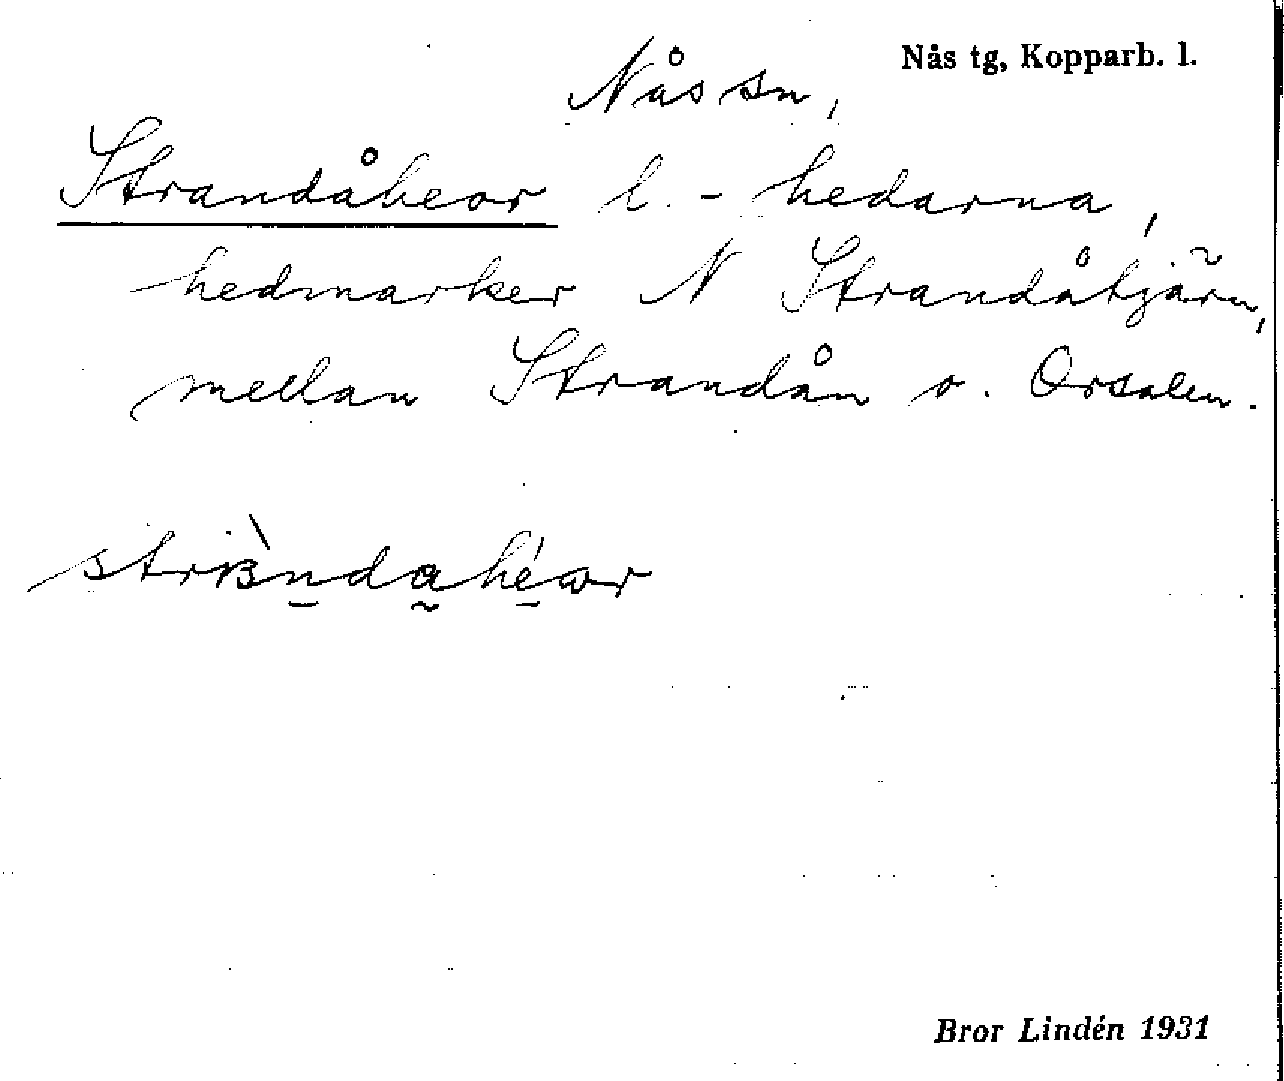 Nås tg, Kopparb. l.
Nås sn,
Strandåheor l. - hedarna,
hedmarker N Strandåtjärn,
mellan Strandån o. Orsalen.
Bror Lindén 1931